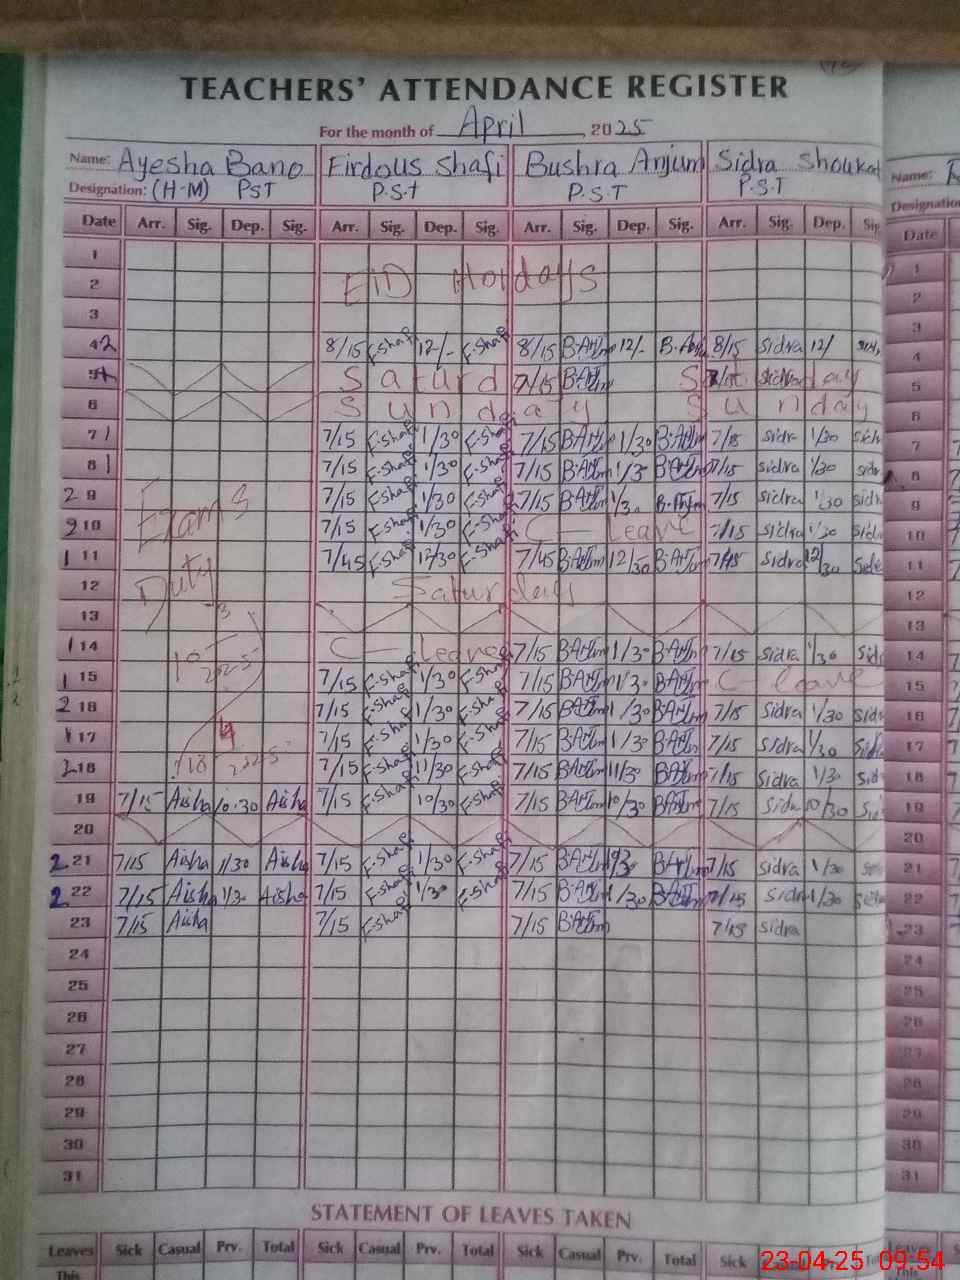 TEACHERS' ATTENDANCE REGISTER
For the month of April, 2025
Name: Ayesha Bano Firdous Shafi Bushra Anjum Sidra Shoukat Name:
Designation: (H-M) PST P.S.T P.S.T P.S.T Designation
Date Arr. Sig. Dep. Sig. Arr. Sig. Dep. Sig. Arr. Sig. Dep. Sig. Arr. Sig. Dep. Sig. Date
1 1
2 EiD Holdays 2
3 3
4 8/15 F.Shafi 12/- F.Shafi 8/15 B.Anjum 12/- B.Anjum 8/15 Sidra 12/ 4
5 Saturday 7/15 B.Anjum 5
6 Sunday Sunday 6
7 7/15 F.Shafi 1/30 F.Shafi 7/15 B.Anjum 1/30 B.Anjum 7/15 Sidra 1/30 Sidra 7
8 7/15 F.Shafi 1/30 F.Shafi 7/15 B.Anjum 1/30 B.Anjum 7/15 Sidra 1/30 Sidra 8
2 9 Exams 7/15 F.Shafi 1/30 F.Shafi 7/15 B.Anjum 1/30 B.Anjum 7/15 Sidra 1/30 Sidra 9
2 10 7/15 F.Shafi 1/30 F.Shafi C-leave 7/15 Sidra 1/30 Sidra 10
1 11 7/45 F.Shafi 12/30 F.Shafi 7/45 B.Anjum 12/30 B.Anjum 7/45 Sidra 12/30 Sidra 11
12 Duty Saturday 12
13 13
1 14 C-leave 7/15 B.Anjum 1/30 B.Anjum 7/15 Sidra 1/30 Sidra 14
1 15 7/15 F.Shafi 1/30 F.Shafi 7/15 B.Anjum 1/30 B.Anjum C-leave 15
2 16 7/15 F.Shafi 1/30 F.Shafi 7/15 B.Anjum 1/30 B.Anjum 7/15 Sidra 1/30 Sidra 16
17 7/15 F.Shafi 1/30 F.Shafi 7/15 B.Anjum 1/30 B.Anjum 7/15 Sidra 1/30 Sidra 17
2 18 7/15 F.Shafi 11/30 F.Shafi 7/15 B.Anjum 11/30 B.Anjum 7/15 Sidra 1/30 Sidra 18
19 7/15 Aisha 10.30 Aisha 7/15 F.Shafi 10/30 F.Shafi 7/15 B.Anjum 10/30 B.Anjum 7/15 Sidra 10/30 19
20 20
2 21 7/15 Aisha 1/30 Aisha 7/15 F.Shafi 1/30 F.Shafi 7/15 B.Anjum B.Anjum 7/15 Sidra 1/30 21
2 22 7/15 Aisha 1/30 Aisha 7/15 F.Shafi 1/30 F.Shafi 7/15 B.Anjum 1/30 B.Anjum 7/15 Sidra 1/30 Sidra 22
23 7/15 Aisha 7/15 F.Shafi 7/15 B.Anjum 7/15 Sidra 23
24 24
25 25
26 26
27 27
28 28
29 29
30 30
31 31
STATEMENT OF LEAVES TAKEN
Leaves Sick Casual Prv. Total Sick Casual Prv. Total Sick Casual Prv. Total Sick Leaves
This
23-04-25 09:54